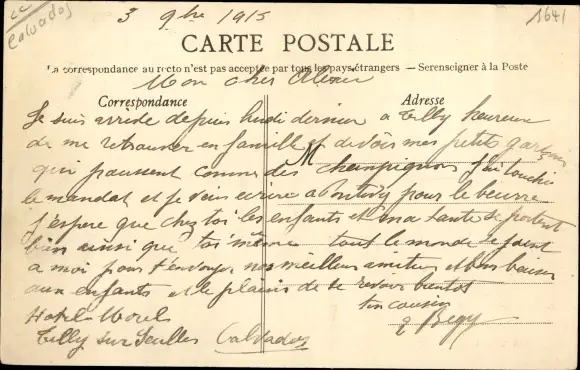 Calvados
3 9bre 1915
1641
CARTE POSTALE
La correspondance au recto n'est pas acceptée par tous les pays étrangers — Se renseigner à la Poste
Mon cher
Correspondance
Adresse
Je suis arrivée depuis lundi dernier a Tilly heureuse
de me retrouver en famille et de voir mes petits garçons
M
qui poussent comme des champignons j'ai touché
le mandat et je viens ecrire a Pontivy pour le beurre
j'espere que chez toi les enfants et ma tante se portent
bien ainsi que toi même tout le monde se joint
a moi pour t'envoyer nos meilleurs amities et bons baisers
aux enfants et le plaisir de te revoir bientot
ton cousin
Hotel
Tilly sur Seulles Calvados